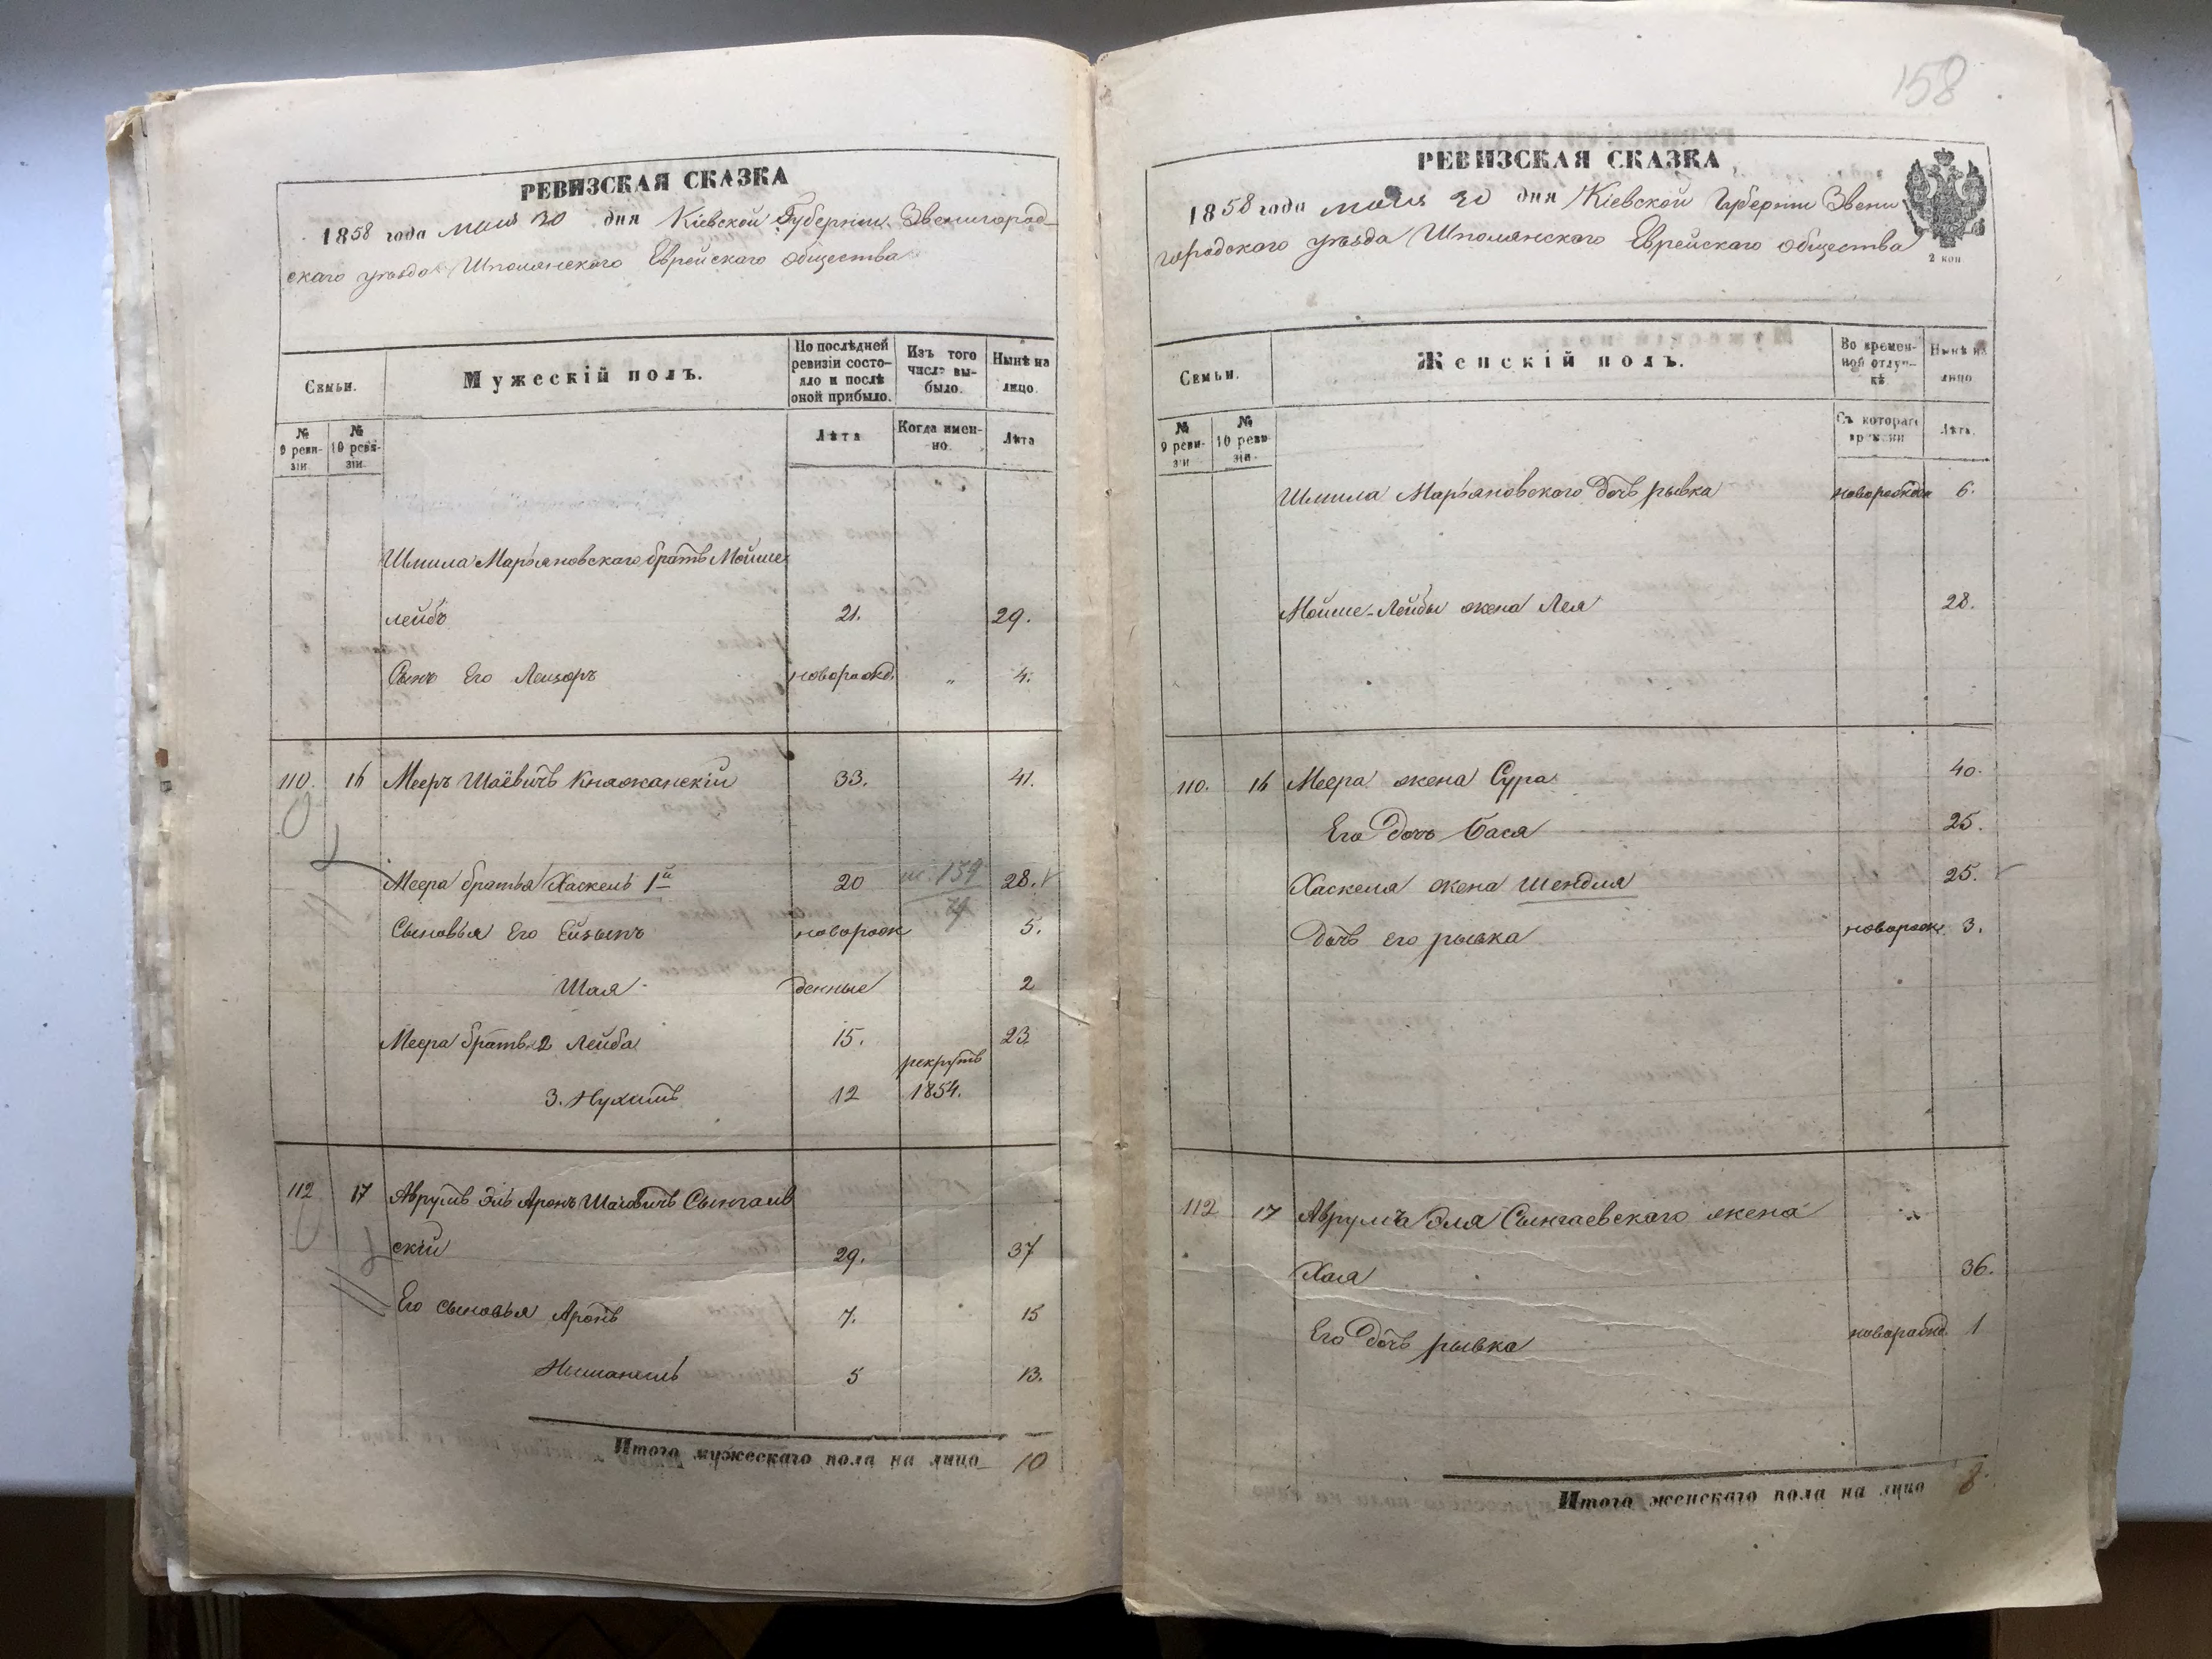 РЕВИЗСКАЯ СКАЗКА
1858 года мая 20 дня Кіевской Губерніи Звенигород-
скаго уѣзда Шполянскаго Еврейскаго общества
Семьи.
Мужескій полъ.
По послѣдней ревизіи состо-
яло и послѣ оной прибыло.
Изъ того числа вы-
было.
Нынѣ на лицо.
№ 9 реви-
зіи
№ 10 реви-
зіи.
Лѣта
Когда имен-
но.
Лѣта
Шмила Марьяновскаго братъ Мойше
лейбъ 21. 29.
Сынъ Его Лейзоръ новорожд. „ 4.
110. 16 Мееръ Шаёвичъ Княжанскій 33. 41.
Меера братья Хаскель 1й 20 28.
Сыновья Его Ейзыкъ новорож 5.
Шая денные 2
Меера братья 2 Лейба 15. 23.
рекрутъ
3. Нухимъ 12 1854.
112 17 Аврумъ Эль Аронъ Шаевичъ Сынгаев
скій 29. 37
Его сыновья Аронъ 7. 15
5 13.
Итого мужескаго пола на лицо 10
158
РЕВИЗСКАЯ СКАЗКА
1858 года мая 20 дня Кіевской Губерніи Звени
городскаго уѣзда Шполянскаго Еврейскаго общества
2 коп
Семьи.
Женскій полъ.
Во времен-
ной отлуч-
кѣ.
Нынѣ на лицо
№ 9 реви-
зіи
№ 10 реви-
зіи.
Съ котораго времени
Лѣта.
Шмила Марьяновскаго дочь рывка новорожден 6.
Мойше-Лейбы жена Лея 28.
110. 16 Меера жена Сура 40.
Его дочь Бася 25.
Хаскеля жена Шендля 25.
дочь его рывка новорож 3.
112 17 Аврума Эля Сынгаевскаго жена
Хая 36.
Его дочь рывка новорожд. 1
Итого женскаго пола на лицо 8.